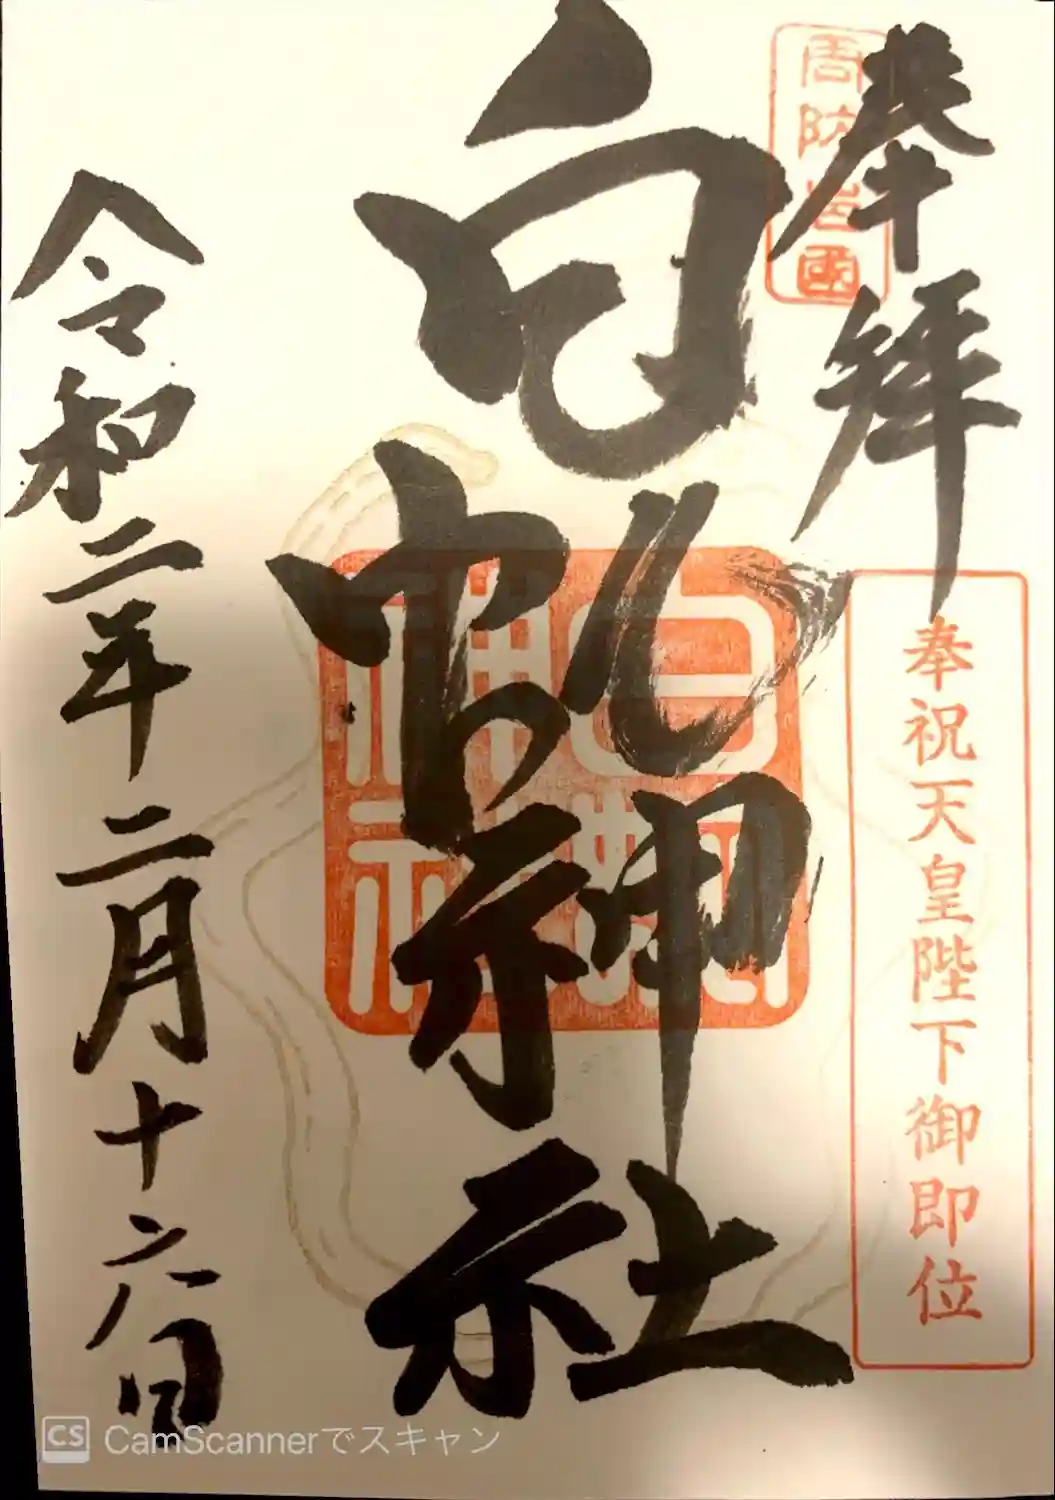 奉拝
周防岩國
奉祝天皇陛下御即位
白蛇神社
白蛇
神社
令和二年二月十六日
CS CamScannerでスキャン